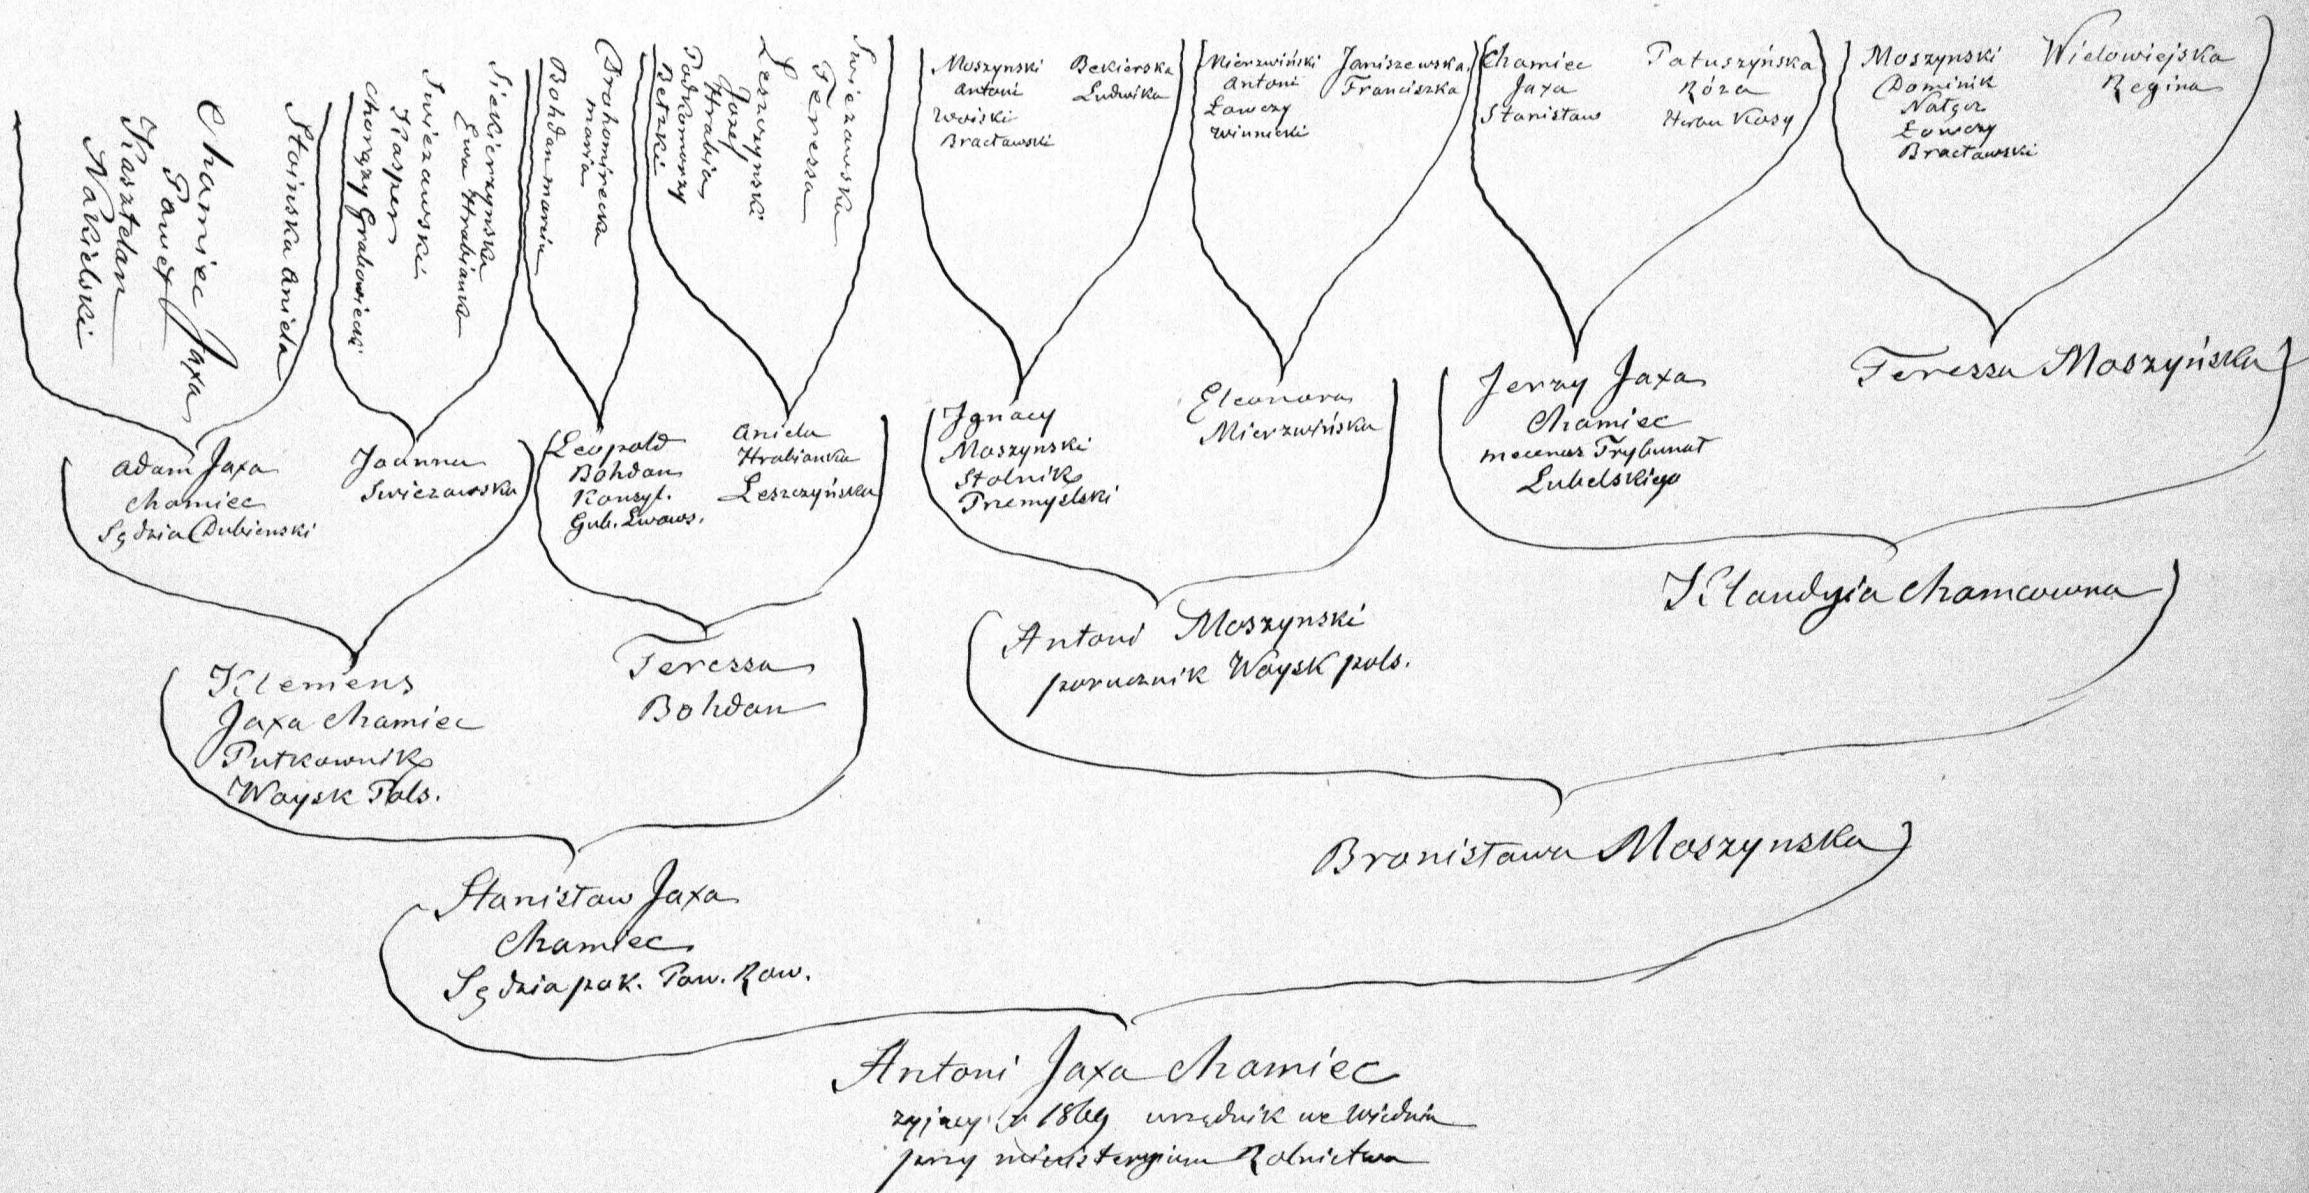 Chamiec Jaxa
Paweł
Kasztelan
Nakielski
Stoińska Aniela
Swiezawski
Kasper
Chorąży Grabowiecki
Siekierzynska
Ewa Hrabianka
Bohdan Marcin
Drohomirecka
Maria
Leszczynski
Jozef
Hrabia
Podkomorzy
Betzki
Swiezawska
Teressa
Moszynski
Antoni
Woiski
Bracławski
Bekierska
Ludwika
Mierzwiński
Antoni
Łowczy
Winnicki
Janiszewska
Franciszka
Chamiec
Jaxa
Stanisław
Patuszyńska
Róża
Herbu Kosy
Moszynski
Dominik
Nałęcz
Łowczy
Bracławski
Wielowiejska
Regina
Adam Jaxa
Chamiec
Sędzia Dubienski
Joanna
Swiezawska
Leopold
Bohdan
Konsyl.
Gub. Lwows.
Aniela
Hrabianka
Leszczyńska
Ignacy
Moszynski
Stolnik
Przemyślski
Eleonora
Mierzwińska
Jerzy Jaxa
Chamiec
mecenas Trybunał
Lubelskiego
Teressa Moszyńska
Klemens
Jaxa Chamiec
Pułkownik
Woysk Pols.
Teressa
Bohdan
Antoni Moszynski
porucznik Woysk pols.
Klaudyia Chamcowna
Stanisław Jaxa
Chamiec
Sędzia pok. Pow. Raw.
Bronisława Moszynska
Antoni Jaxa Chamiec
zyjący w 1869 urzędnik we Wiedniu
przy ministeryium Rolnictwa